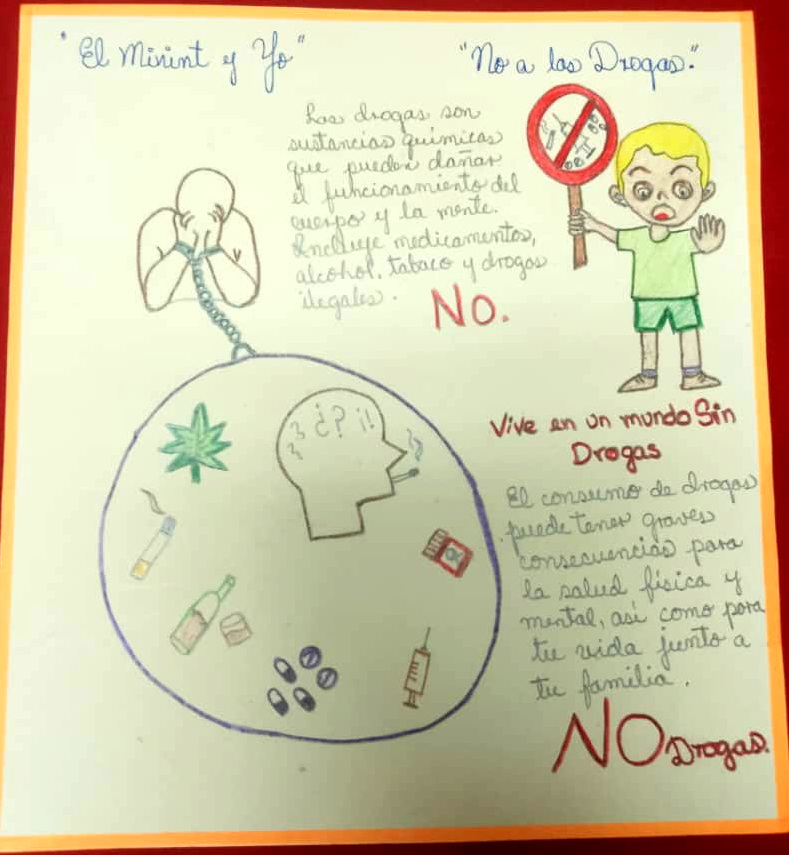 "El Minint y Yo"
"No a las Drogas."
Las drogas son
sustancias químicas
que pueden dañar
el funcionamiento del
cuerpo y la mente.
Incluye medicamentos,
alcohol, tabaco y drogas
ilegales.
NO.
¿? ¡!
Vive en un mundo Sin
Drogas
El consumo de drogas
puede tener graves
consecuencias para
la salud física y
mental, así como para
tu vida junto a
tu familia.
NO Drogas.